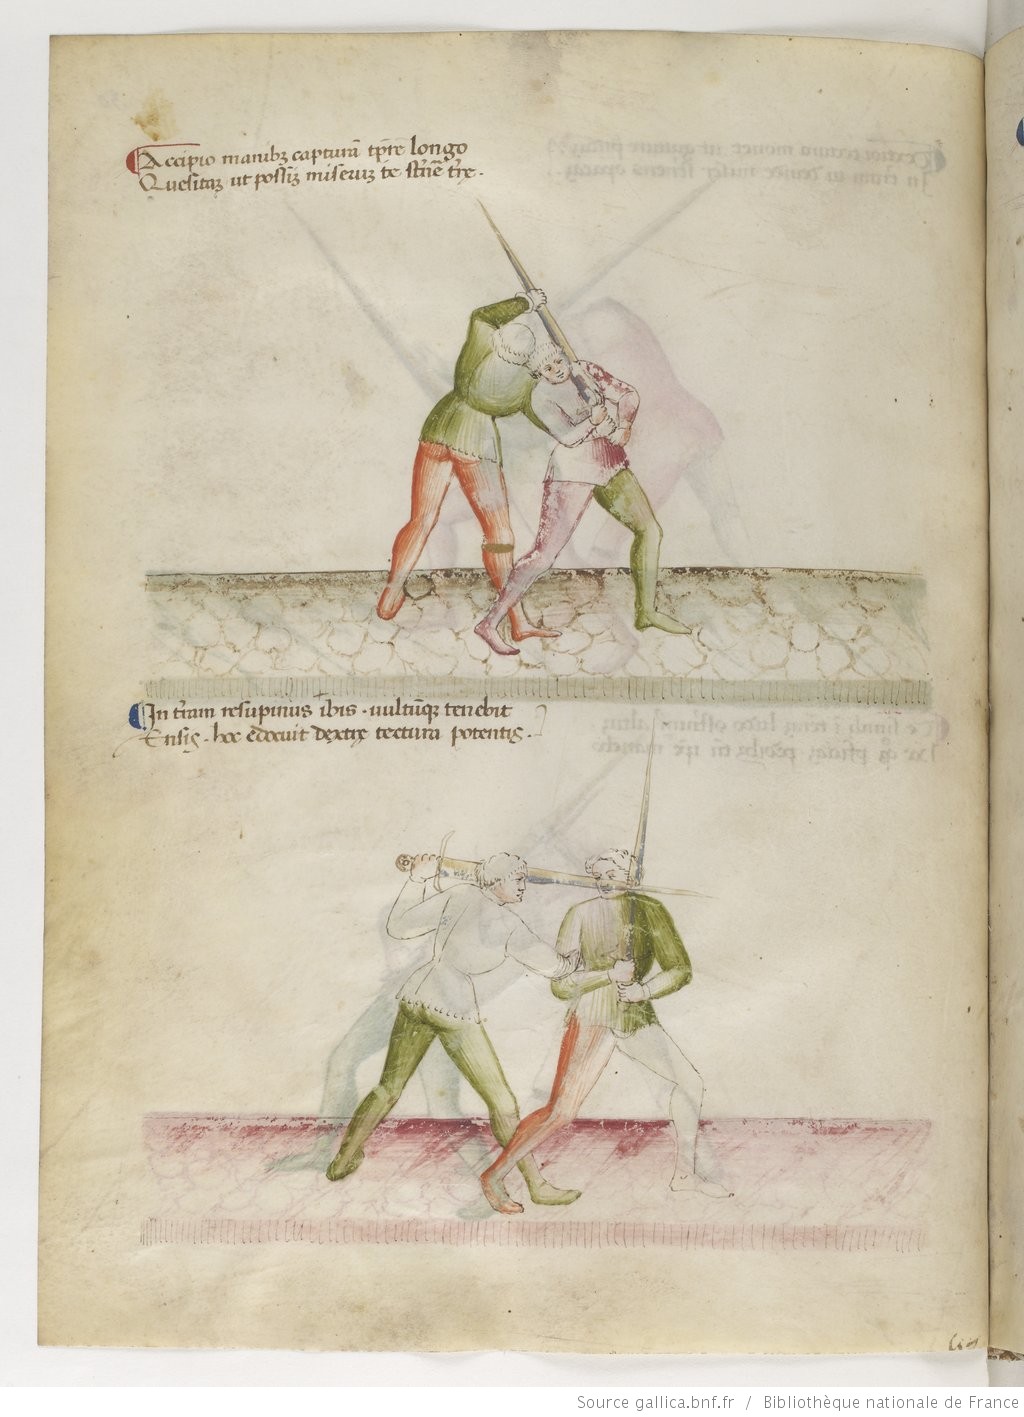 Accipio manibꝫ capturā tp̄re longo
Quesitaꝫ ut possiꝫ miseruꝫ te st̄nē tr̄e.
In tr̄am resupinus ibis. uultūqꝫ tenebit
Ensis. hoc edocuit dextre tectura potentis.
Source gallica.bnf.fr / Bibliothèque nationale de France